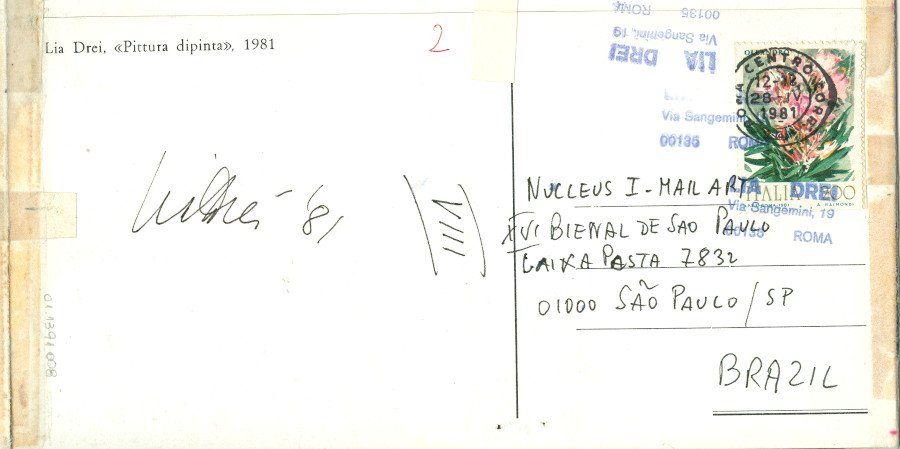 Lia Drei, «Pittura dipinta», 1981
2
LIA DREI
Via Sangemini, 19
00135 ROMA
Via Sangemini
00135 RO
OLEANDRO
CENTRO CORR
12-
28-IV
1981
ITALIA 200
A. RAIMONDI
LIA DREI
Via Sangemini, 19
00135 ROMA
Lia Drei '81
VIII
NUCLEUS I - MAIL ARTE
XVI BIENAL DE SAO PAULO
CAIXA PASTA 7832
01000 SÃO PAULO/SP
BRAZIL
01.1391.008